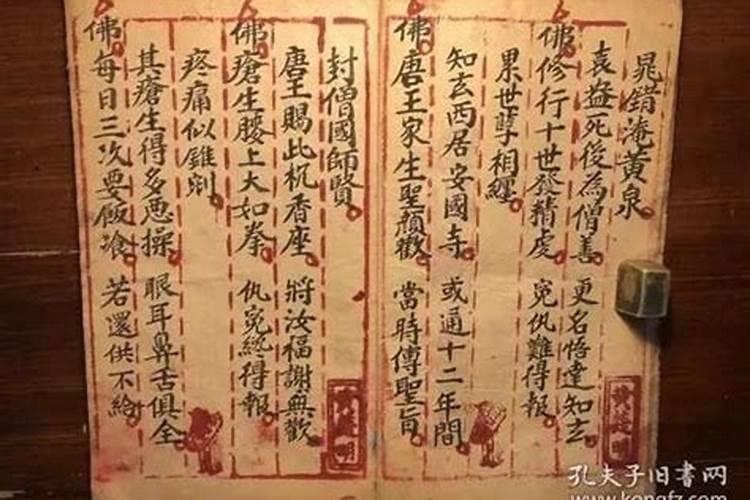 晁錯淹黄泉
袁盎死後為僧善 更名悟達知玄
佛修行十世發精虔 寃仇難得報
累世孽相纏
知玄西居安國寺 或通十二年間
佛唐王家生聖顏歡 當時傳聖旨
封僧國師賢
唐王賜此杋香座 將汝福謝無歡
佛瘡生腰上大如拳 仇寃終得報
疼痛似錐剜
其瘡生得多悪操 眼耳鼻舌俱全
佛每日三次要飯飡 若還供不給
孔夫子旧書网